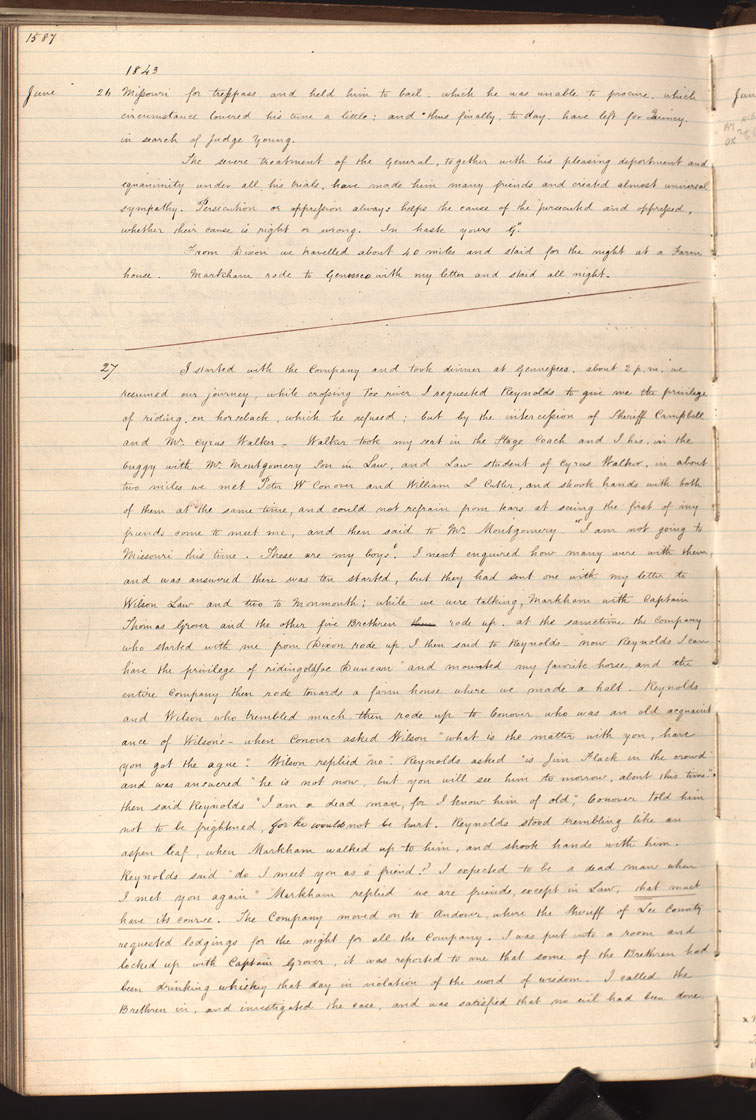 1587
1843
June 26 Missouri for trespass and held him to bail, which he was unable to procure, which
circumstance lowered his tone a little; and thus finally, to day, have left for Quincy
in search of Judge Young.
The severe treatment of the General, together with his pleasing deportment and
equanimity under all his trials, have made him many friends and created almost universal
sympathy. Persecution or oppression always helps the cause of the persecuted and oppressed,
whether their cause is right or wrong. In haste yours G".
From Dixon we travelled about 40 miles and staid for the night at a Farm
house. Markham rode to Geneseo with my letter and staid all night.
27 I started with the Company and took dinner at Genneseo, about 2 p.m. we
resumed our journey, while crossing Fox river I requested Reynolds to give me the privilege
of riding on horseback, which he refused; but by the intercession of Sheriff Campbell
and Mr. Cyrus Walker – Walker took my seat in the Stage Coach and I his, in the
buggy with Mr. Montgomery Son in Law, and Law student of Cyrus Walker, in about
two miles we met Peter W Conover and William L Cutler, and shook hands with both
of them at the same time, and could not refrain from tears at seeing the first of my
friends come to meet me, and then said to Mr. Montgomery "I am not going to
Missouri this time. These are my boys". I next enquired how many were with them,
and was answered there was ten started, but they had sent one with my letter to
Wilson Law and two to Monmouth; while we were talking, Markham with Captain
Thomas Grover and the other five Brethren rode up at the sametime the Company
who started with me from Dixon rode up, I then said to Reynolds – "now Reynolds I can
have the privilege of riding old Joe Duncan" and mounted my favorite horse, and the
entire Company then rode towards a farm house where we made a halt. Reynolds
and Wilson who trembled much, then rode up to Conover who was an old acquaint
ance of Wilson's – when Conover asked Wilson "what is the matter with you, have
you got the ague". Wilson replied "no". Reynolds asked "is Jim Flack in the crowd"
and was answered "he is not now, but you will see him to morrow, about this time".
then said Reynolds "I am a dead man, for I know him of old", Conover told him
not to be frightened, for he would not be hurt. Reynolds stood trembling like an
aspen leaf, when Markham walked up to him, and shook hands with him.
Reynolds said "do I meet you as a friend? I expected to be a dead man when
I met you again" Markham replied "we are friends, except in Law, that must
have its course. The Company moved on to Andover, where the Sheriff of Lee County
requested lodgings for the night for all the Company. I was put into a room and
locked up with Captain Grover, it was reported to me that some of the Brethren had
been drinking whiskey that day in violation of the word of wisdom. I called the
Brethren in, and investigated the case, and was satisfied that no evil had been done,